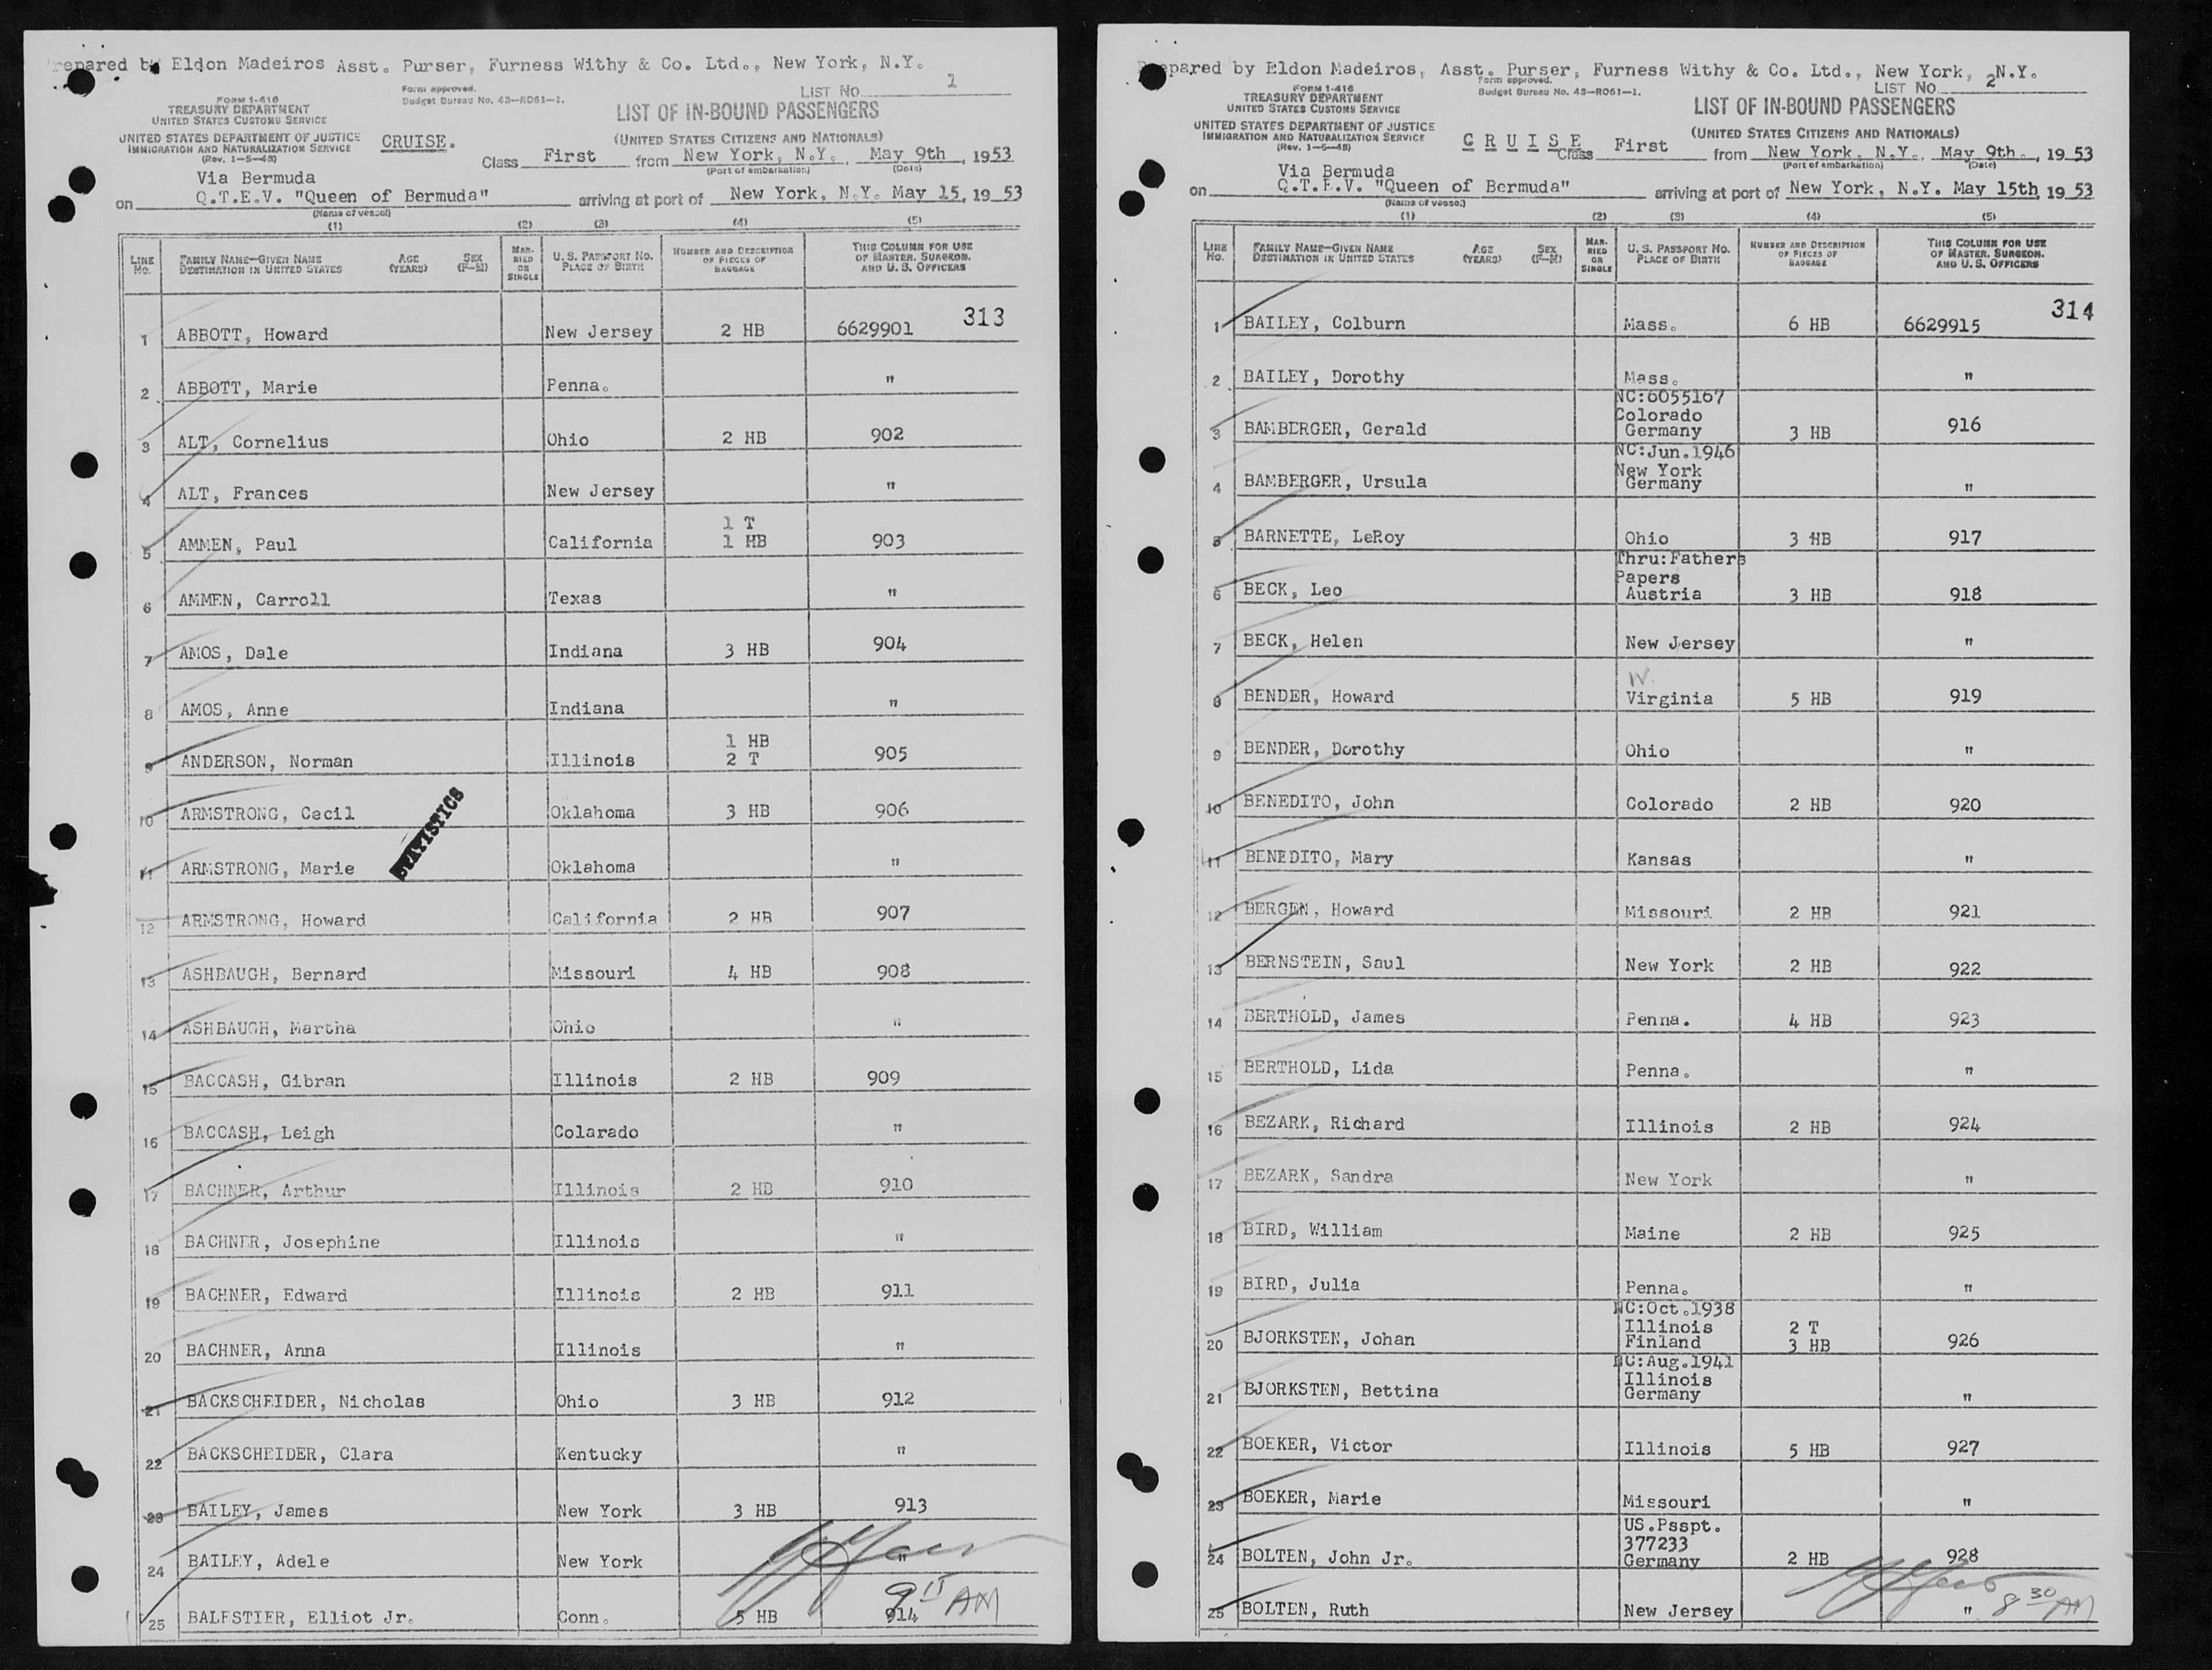 repared by Eldon Madeiros Asst. Purser, Furness Withy & Co. Ltd., New York, N.Y.
Form approved.
Budget Bureau No. 43—R061—1.
LIST No. 1
FORM 1-416
TREASURY DEPARTMENT
UNITED STATES CUSTOMS SERVICE
LIST OF IN-BOUND PASSENGERS
UNITED STATES DEPARTMENT OF JUSTICE
IMMIGRATION AND NATURALIZATION SERVICE
(Rev. 1—5—48)
CRUISE.
(UNITED STATES CITIZENS AND NATIONALS)
Class First from New York, N.Y., May 9th, 1953
(Port of embarkation) (Date)
Via Bermuda
on Q.T.E.V. "Queen of Bermuda" arriving at port of New York, N.Y. May 15, 1953
(Name of vessel)
(1) (2) (3) (4) (5)
LINE No. FAMILY NAME—GIVEN NAME DESTINATION IN UNITED STATES AGE (YEARS) SEX (F—M) MARRIED OR SINGLE U. S. PASSPORT NO. PLACE OF BIRTH NUMBER AND DESCRIPTION OF PIECES OF BAGGAGE THIS COLUMN FOR USE OF MASTER, SURGEON, AND U. S. OFFICERS
313
1 ABBOTT, Howard New Jersey 2 HB 6629901
2 ABBOTT, Marie Penna. "
3 ALT, Cornelius Ohio 2 HB 902
4 ALT, Frances New Jersey "
5 AMMEN, Paul California 1 T 1 HB 903
6 AMMEN, Carroll Texas "
7 AMOS, Dale Indiana 3 HB 904
8 AMOS, Anne Indiana "
9 ANDERSON, Norman Illinois 1 HB 2 T 905
10 ARMSTRONG, Cecil Oklahoma 3 HB 906
STATISTICS
11 ARMSTRONG, Marie Oklahoma "
12 ARMSTRONG, Howard California 2 HB 907
13 ASHBAUGH, Bernard Missouri 4 HB 908
14 ASHBAUGH, Martha Ohio "
15 BACCASH, Gibran Illinois 2 HB 909
16 BACCASH, Leigh Colarado "
17 BACHNER, Arthur Illinois 2 HB 910
18 BACHNER, Josephine Illinois "
19 BACHNER, Edward Illinois 2 HB 911
20 BACHNER, Anna Illinois "
21 BACKSCHEIDER, Nicholas Ohio 3 HB 912
22 BACKSCHEIDER, Clara Kentucky "
23 BAILEY, James New York 3 HB 913
24 BAILEY, Adele New York "
9 15 AM
25 BALESTIER, Elliot Jr. Conn. 5 HB 914
Prepared by Eldon Madeiros, Asst. Purser, Furness Withy & Co. Ltd., New York, N.Y.
Form approved.
Budget Bureau No. 43—R061—1.
LIST No. 2
FORM 1-416
TREASURY DEPARTMENT
UNITED STATES CUSTOMS SERVICE
LIST OF IN-BOUND PASSENGERS
UNITED STATES DEPARTMENT OF JUSTICE
IMMIGRATION AND NATURALIZATION SERVICE
(Rev. 1—5—48)
C R U I S E
(UNITED STATES CITIZENS AND NATIONALS)
Class First from New York, N.Y., May 9th., 1953
(Port of embarkation) (Date)
Via Bermuda
on Q.T.E.V. "Queen of Bermuda" arriving at port of New York, N.Y. May 15th, 1953
(Name of vessel)
(1) (2) (3) (4) (5)
LINE No. FAMILY NAME—GIVEN NAME DESTINATION IN UNITED STATES AGE (YEARS) SEX (F—M) MARRIED OR SINGLE U. S. PASSPORT NO. PLACE OF BIRTH NUMBER AND DESCRIPTION OF PIECES OF BAGGAGE THIS COLUMN FOR USE OF MASTER, SURGEON, AND U. S. OFFICERS
314
1 BAILEY, Colburn Mass. 6 HB 6629915
2 BAILEY, Dorothy Mass. "
3 BAMBERGER, Gerald NC:6055167 Colorado Germany 3 HB 916
4 BAMBERGER, Ursula NC:Jun.1946 New York Germany "
5 BARNETTE, LeRoy Ohio 3 HB 917
6 BECK, Leo Thru:Fathers Papers Austria 3 HB 918
7 BECK, Helen New Jersey "
8 BENDER, Howard W. Virginia 5 HB 919
9 BENDER, Dorothy Ohio "
10 BENEDITO, John Colorado 2 HB 920
11 BENEDITO, Mary Kansas "
12 BERGEN, Howard Missouri 2 HB 921
13 BERNSTEIN, Saul New York 2 HB 922
14 BERTHOLD, James Penna. 4 HB 923
15 BERTHOLD, Lida Penna. "
16 BEZARK, Richard Illinois 2 HB 924
17 BEZARK, Sandra New York "
18 BIRD, William Maine 2 HB 925
19 BIRD, Julia Penna. "
20 BJORKSTEN, Johan NC:Oct.1938 Illinois Finland 2 T 3 HB 926
21 BJORKSTEN, Bettina NC:Aug.1941 Illinois Germany "
22 BOEKER, Victor Illinois 5 HB 927
23 BOEKER, Marie Missouri "
24 BOLTEN, John Jr. US.Psspt. 377233 Germany 2 HB 928
25 BOLTEN, Ruth New Jersey " 8 30 AM